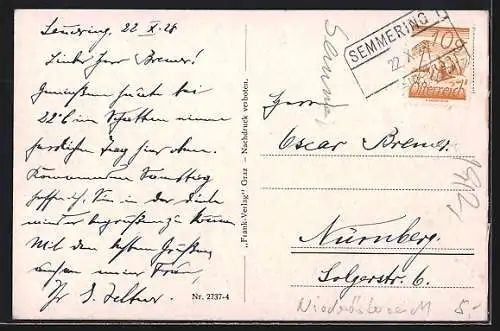 Semmering, 22 X. 26
Lieber Herr Bremer!
Genießen heute bei
22°C im Schatten einen
herrlichen Tag hier oben.
Kommenden Samstag
hoffe ich, Sie in der Diele
wieder begrüßen zu können.
Mit den besten Grüßen
auch meiner Frau,
Ihr
Nr. 2737-4
„Frank-Verlag" Graz - Nachdruck verboten.
SEMMERING
22. X.
10
Österreich
Semmer
Herrn
Oscar Bremer
Nürnberg.
Solgerstr. 6.
Niederösterreich
5.-